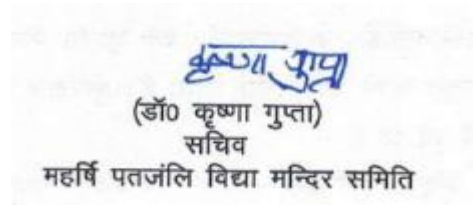 कृष्णा गुप्ता
(डॉ0 कृष्णा गुप्ता)
सचिव
महर्षि पतजंलि विद्या मन्दिर समिति